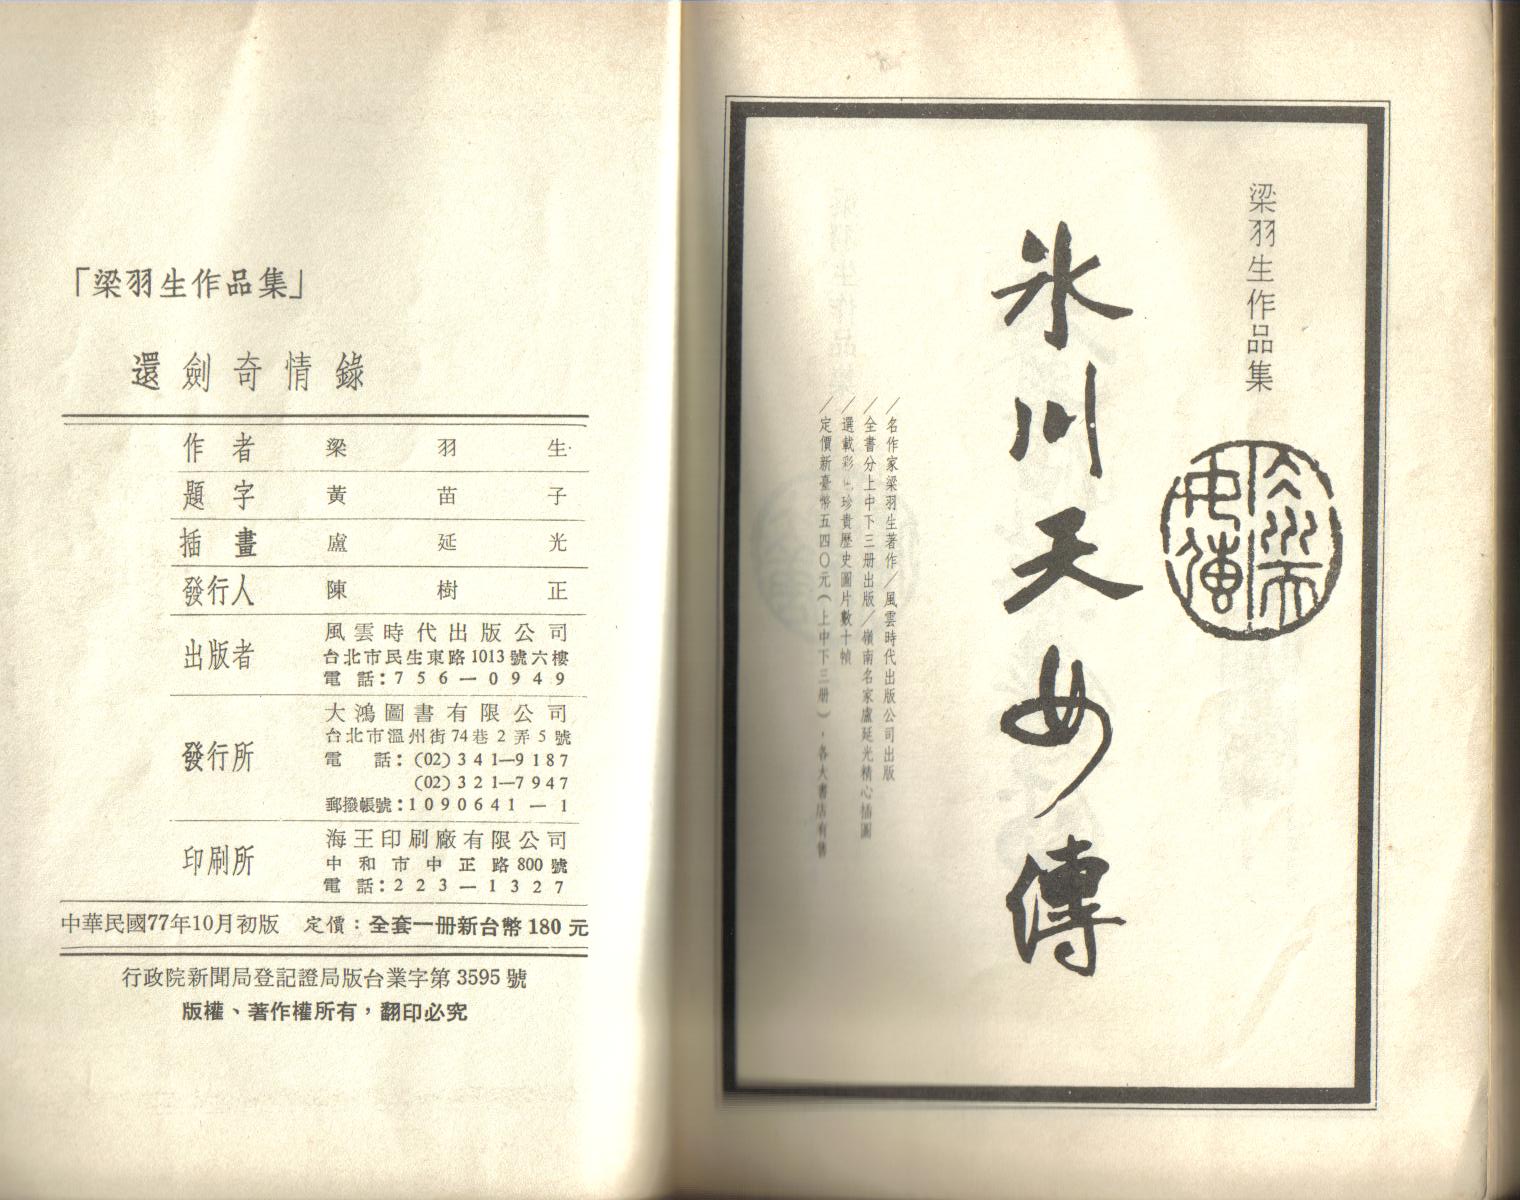 「梁羽生作品集」
還劍奇情錄
作者 梁羽生
題字 黃苗子
插畫 盧延光
發行人 陳樹正
出版者 風雲時代出版公司
台北市民生東路1013號六樓
電話：756－0949
發行所 大鴻圖書有限公司
台北市溫州街74巷2弄5號
電話：(02)341－9187
(02)321－7947
郵撥帳號：1090641－1
印刷所 海王印刷廠有限公司
中和市中正路800號
電話：223－1327
中華民國77年10月初版 定價：全套一冊新台幣180元
行政院新聞局登記證局版台業字第3595號
版權、著作權所有，翻印必究
梁羽生作品集
冰川天女傳
／名作家梁羽生著作／風雲時代出版公司出版
／全書分上中下三册出版／嶺南名家盧延光精心插圖
／選載彩色珍貴歷史圖片數十幀
／定價新臺幣五四〇元（上中下三册），各大書店有售